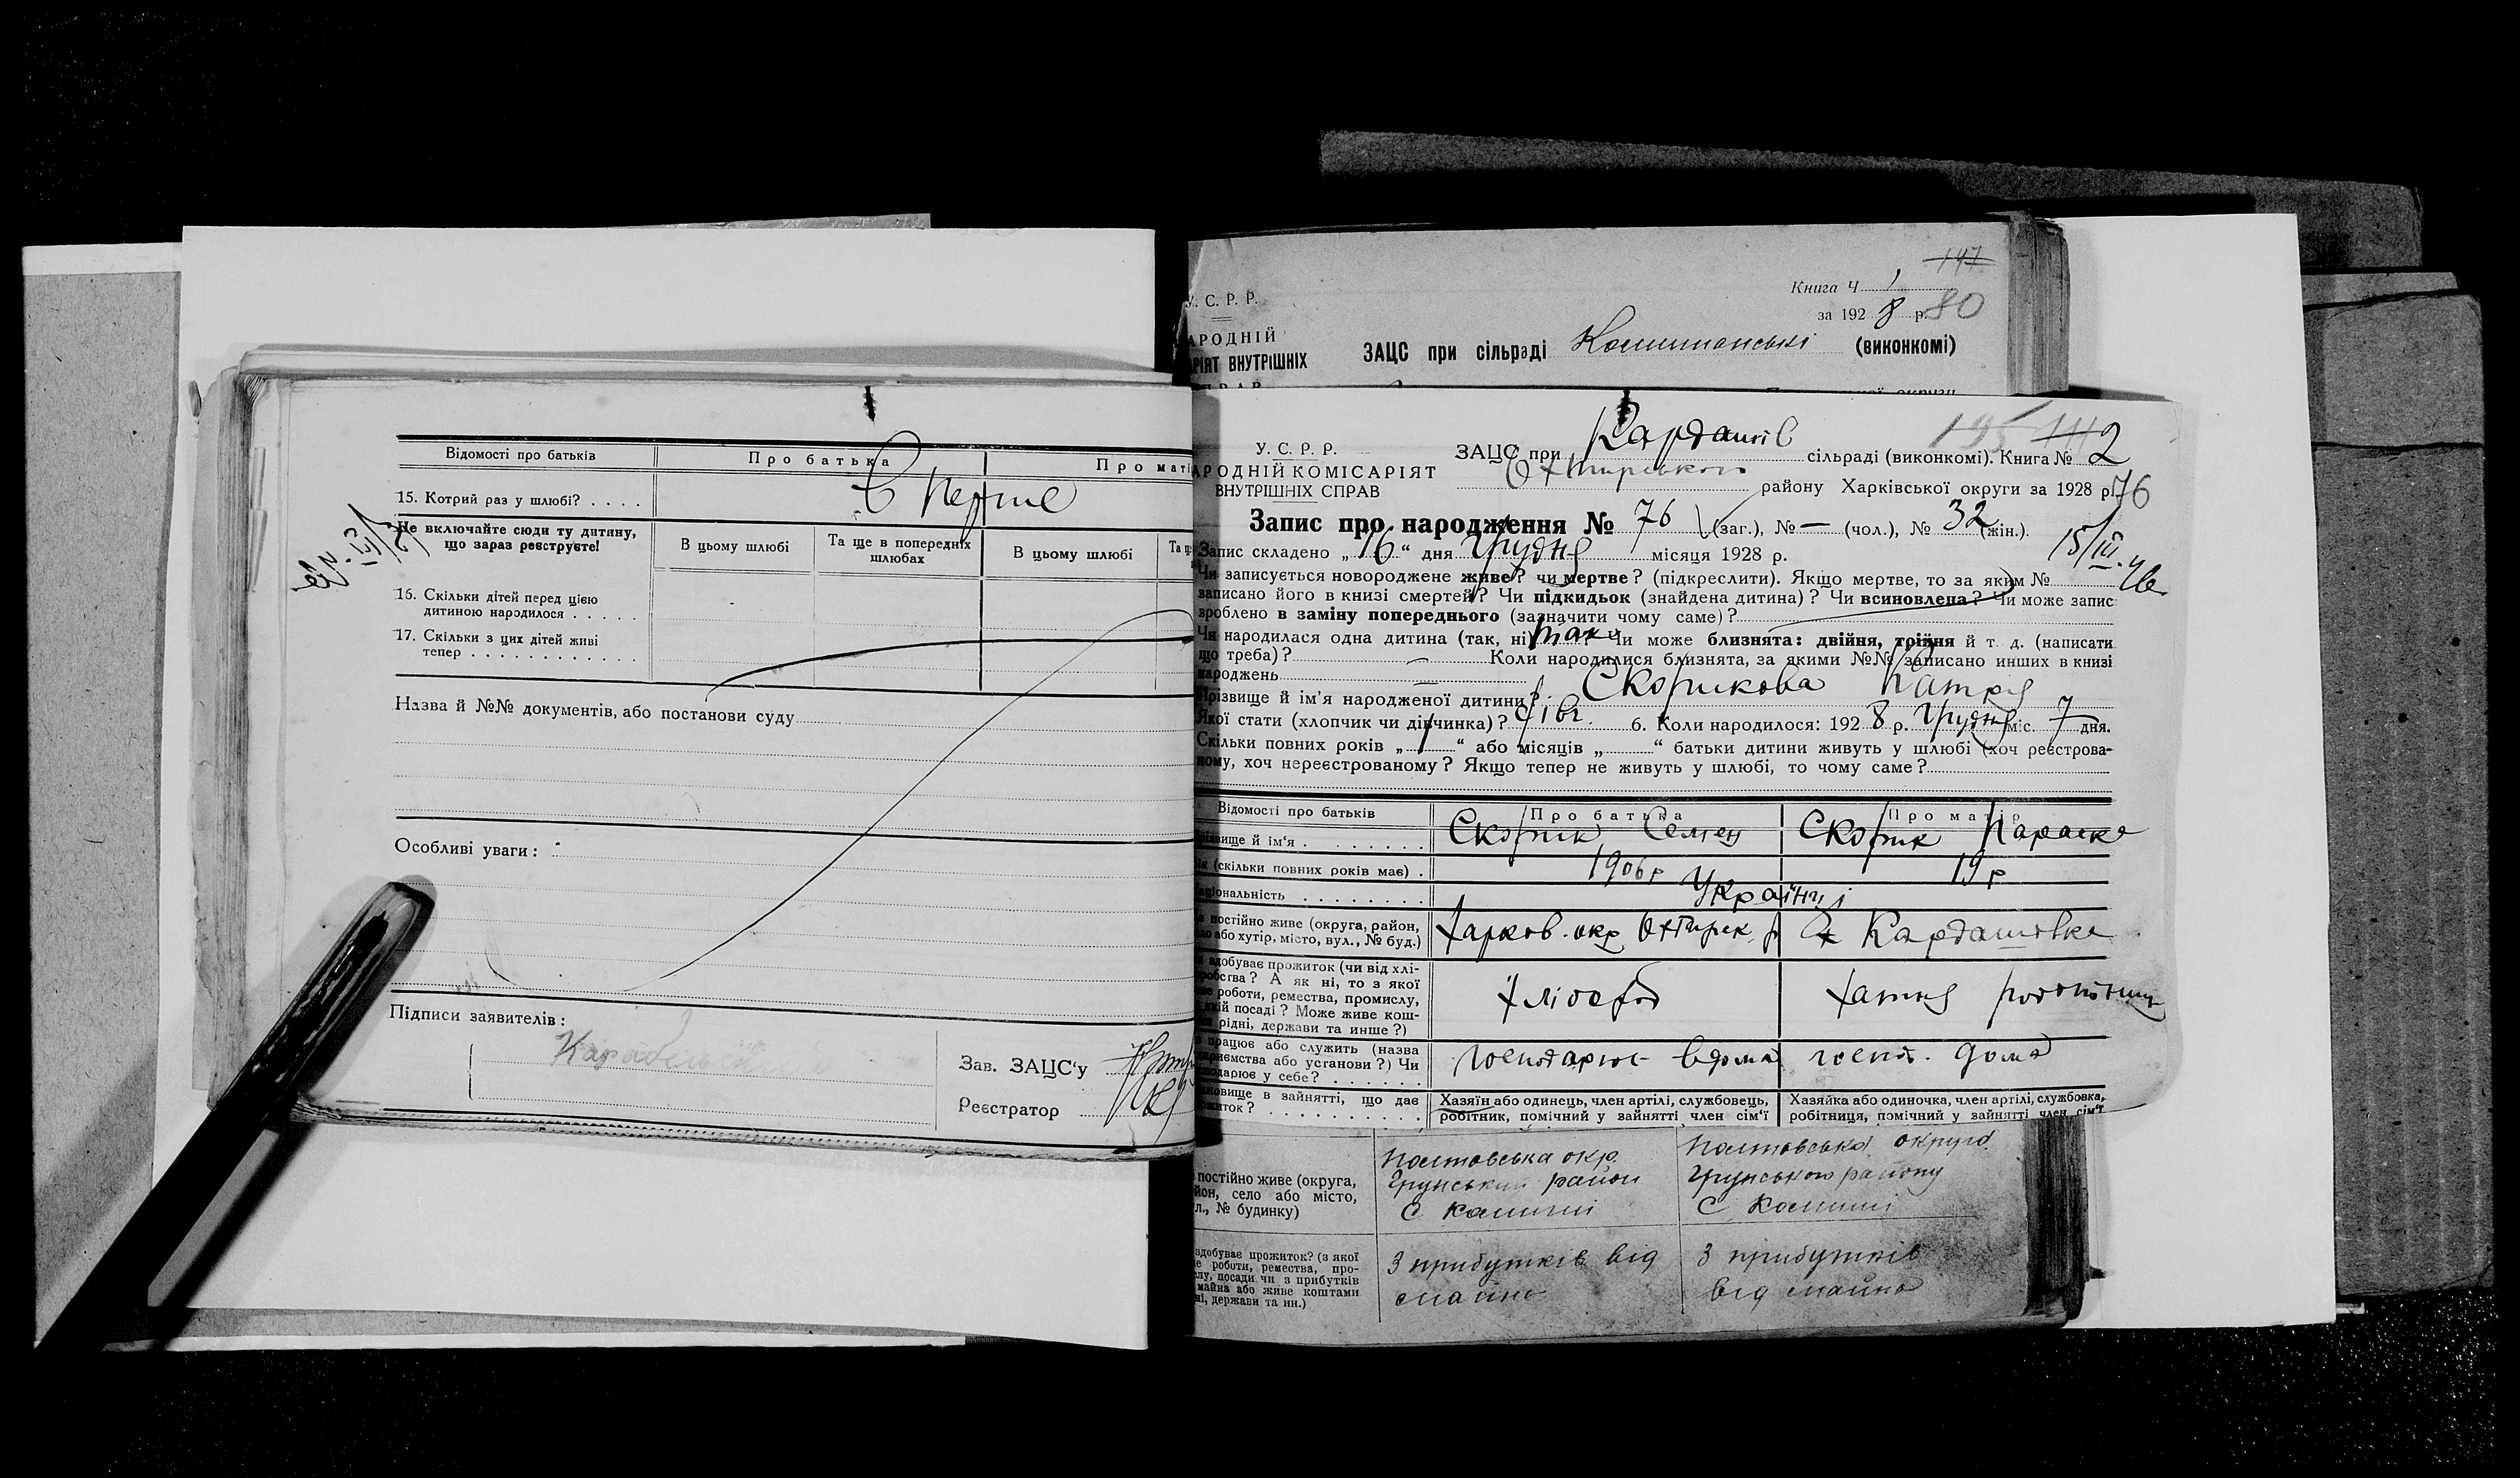 Відомості про батьків
Про батька
Про маті
15. Котрий раз у шлюбі? . . . .
В перше
Не включайте сюди ту дитину,
що зараз реєструєте!
В цьому шлюбі
Та ще в попередніх
шлюбах
В цьому шлюбі
Та щ
16. Скільки дітей перед цією
дитиною народилося . . . . .
17. Скільки з цих дітей живі
тепер . . . . . . . . . . . .
Назва й №№ документів, або постанови суду
Особливі уваги:
Підписи заявителів:
Зав. ЗАЦС'у
Реєстратор
147
Книга Ч 1
за 1928 р. 80
У. С. Р. Р.
АРОДНІЙ
РІЯТ ВНУТРІШНІХ
ЗАЦС при сільраді (виконкомі)
2
У. С. Р. Р.
АРОДНІЙ КОМІСАРІЯТ
ВНУТРІШНІХ СПРАВ
ЗАЦС при Кардашів сільраді (виконкомі). Книга № 2
Охтирського району Харківської округи за 1928 р. 76
Запис про народження № 76 (заг.), № — (чол.), № 32 (жін.).
Запис складено „16“ дня Грудня місяця 1928 р.
15/III
Чи записується новороджене живе? чи мертве? (підкреслити). Якщо мертве, то за яким №
записано його в книзі смертей? Чи підкидьок (знайдена дитина)? Чи всиновлена? Чи може запис
зроблено в заміну попереднього (зазначити чому саме)?
Чи народилася одна дитина (так, ні) так? Чи може близнята: двійня, трійня й т. д. (написати
що треба)? — Коли народилися близнята, за якими №№ записано инших в книзі
народжень —
Прізвище й ім'я народженої дитини? Скорикова Катря
Якої стати (хлопчик чи дівчинка)? дівч. 6. Коли народилося: 1928 р. Грудня міс. 7 дня.
Скільки повних років „1“ або місяців „ “ батьки дитини живуть у шлюбі (хоч реєстрова-
ному, хоч нереєстрованому? Якщо тепер не живуть у шлюбі, то чому саме?
Відомості про батьків
Про батька
Про матір
звище й ім'я . . . . . . .
Скорик Семен
Скорик Параска
ік (скільки повних років має) .
1906 р
19 р
аціональність . . . . . . . .
Українці
е постійно живе (округа, район,
ло або хутір, місто, вул., № буд.)
Харков. окр Охтирск. р
с Кардашовке
здобуває прожиток (чи від хлі-
робства? А як ні, то з якої
е роботи, ремества, промислу,
якій посаді? Може живе кош-
рідні, держави та инше?)
Хлібороб
Хатня робітниця
працює або служить (назва
риємства або установи?) Чи
подарює у себе? . . . . . .
господарює вдома
госпо. дома
ановище в зайнятті, що дає
житок? . . . . . . . . . .
Хазяїн або одинець, член артілі, службовець,
робітник, помічний у зайнятті член сім'ї
Хазяйка або одиночка, член артілі, службовка,
робітниця, помічний у зайнятті член сім'ї
постійно живе (округа,
йон, село або місто,
л., № будинку)
Полтовська окр.
Грунський район
Полтовська округа
Грунського району
здобуває прожиток? (з якої
е роботи, ремества, про-
слу, посади чи з прибутків
майна або живе коштами
ні, держави та ин.)
З прибутків від
майна
З прибутків
від майна